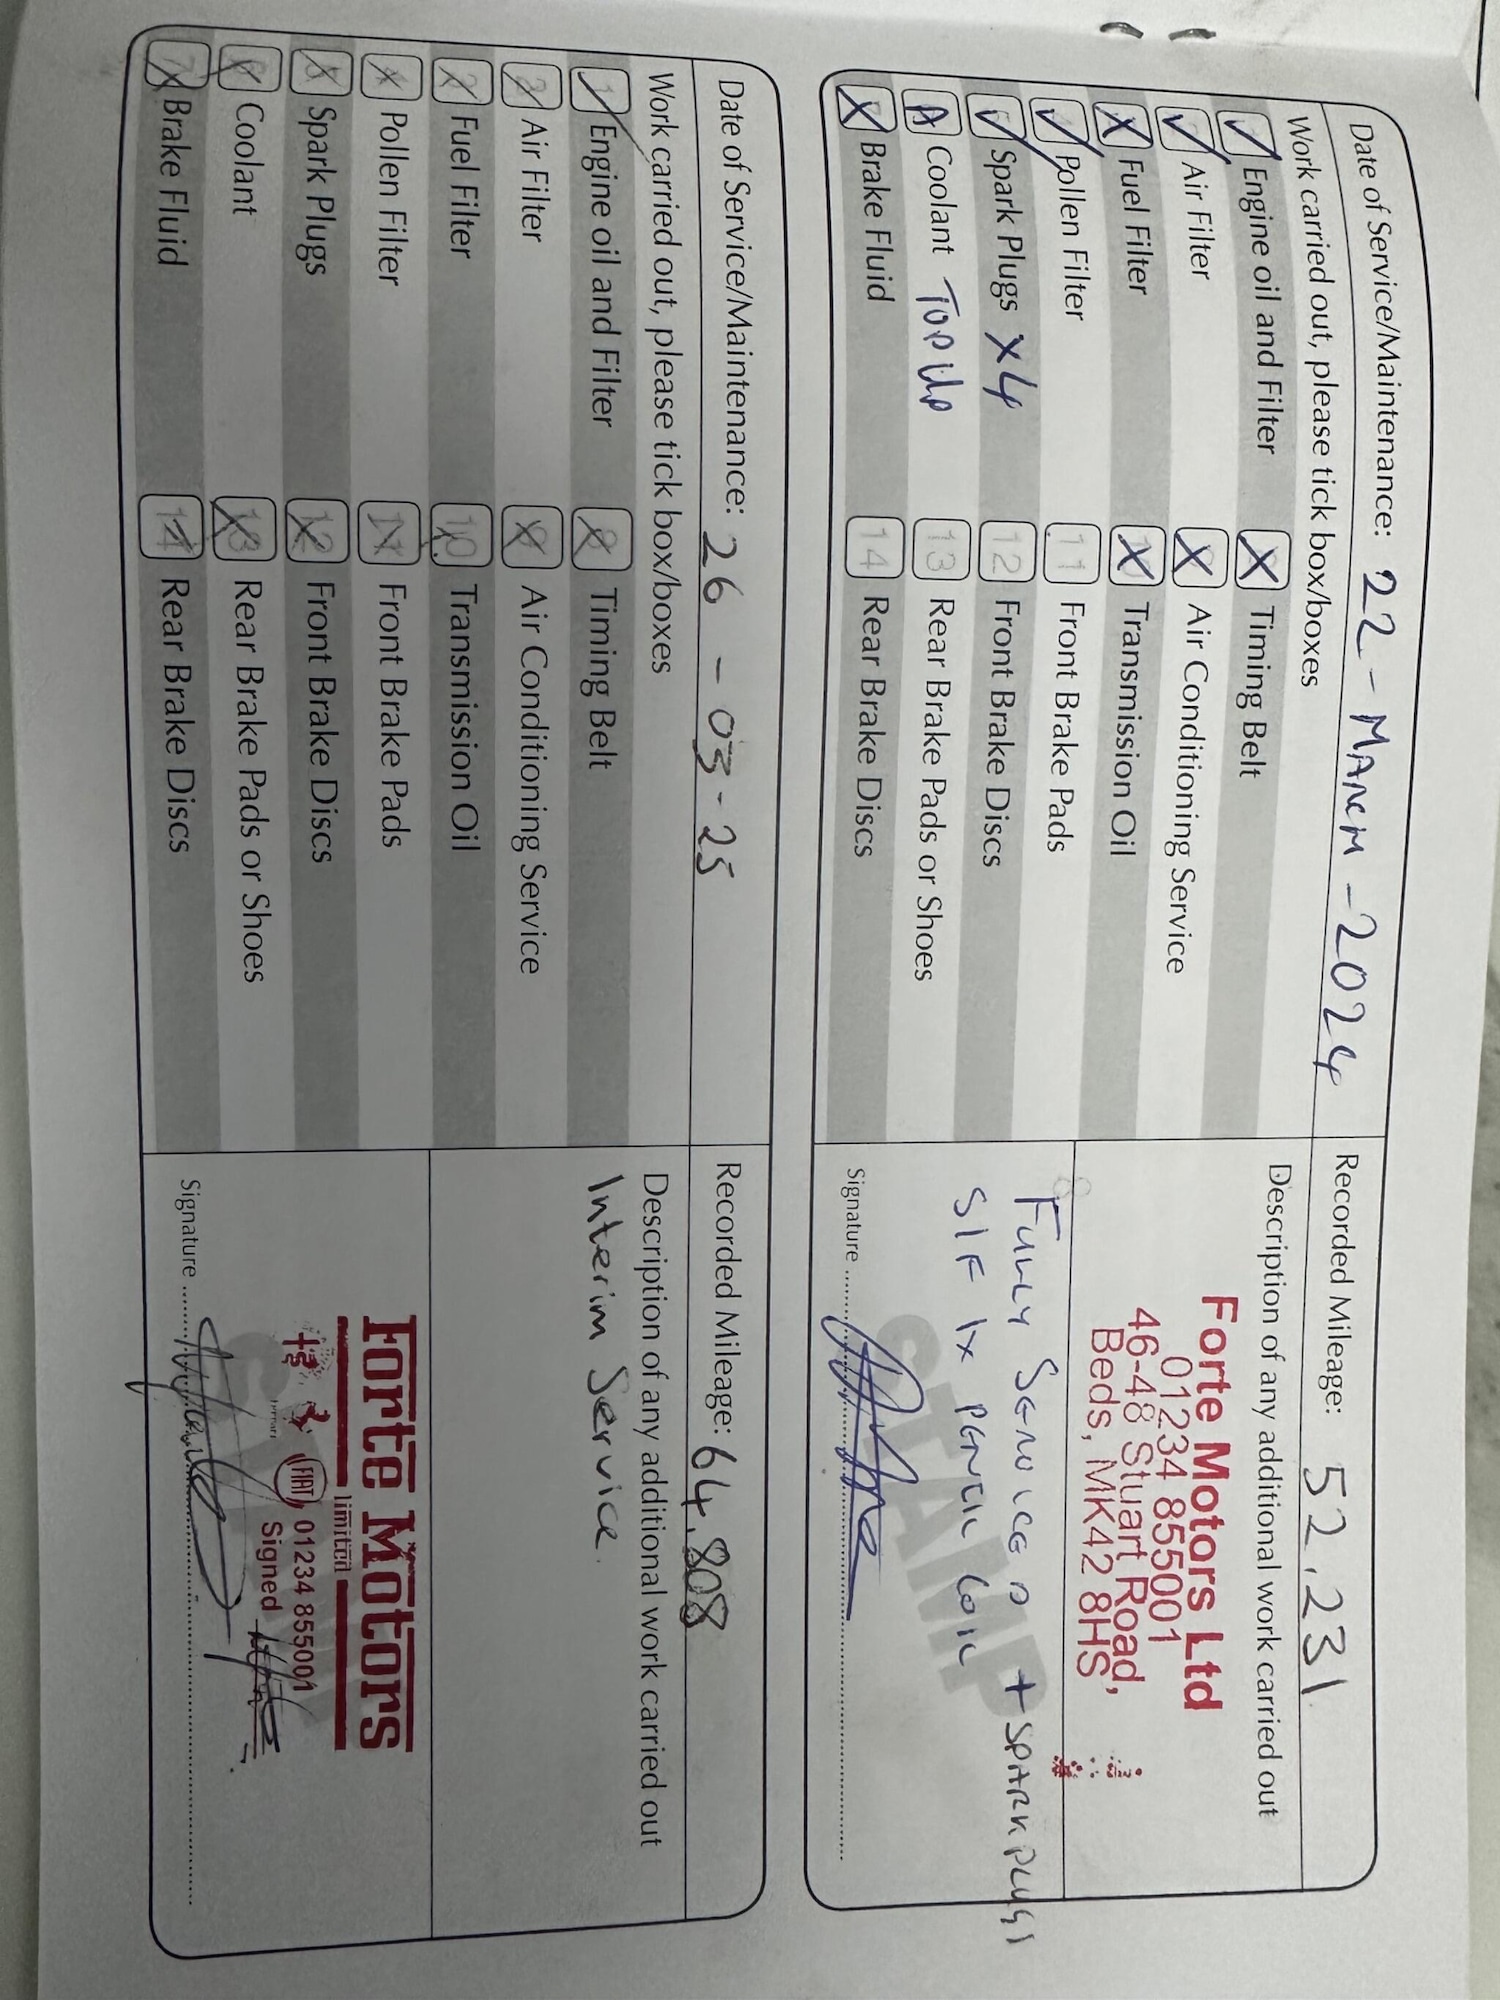 Date of Service/Maintenance: 22-MARCH-2024
Recorded Mileage: 52,231
Work carried out, please tick box/boxes
Engine oil and Filter
Timing Belt
Air Filter
Air Conditioning Service
Fuel Filter
Transmission Oil
Pollen Filter
11 Front Brake Pads
Spark Plugs X4
12 Front Brake Discs
A Coolant TOP UP
13 Rear Brake Pads or Shoes
X Brake Fluid
14 Rear Brake Discs
Description of any additional work carried out
Forte Motors Ltd
01234 855001
46-48 Stuart Road,
Beds, MK42 8HS
FULLY SERVICED + SPARK PLUGS
S/F 1x PENCIL COIL
STAMP
Signature
Date of Service/Maintenance: 26-03-25
Recorded Mileage: 64,808
Work carried out, please tick box/boxes
1 Engine oil and Filter
8 Timing Belt
2 Air Filter
9 Air Conditioning Service
3 Fuel Filter
10 Transmission Oil
4 Pollen Filter
11 Front Brake Pads
5 Spark Plugs
12 Front Brake Discs
6 Coolant
13 Rear Brake Pads or Shoes
7 Brake Fluid
14 Rear Brake Discs
Description of any additional work carried out
Interim Service.
Forte Motors
limited
FIAT 01234 855001
Signed
Signature